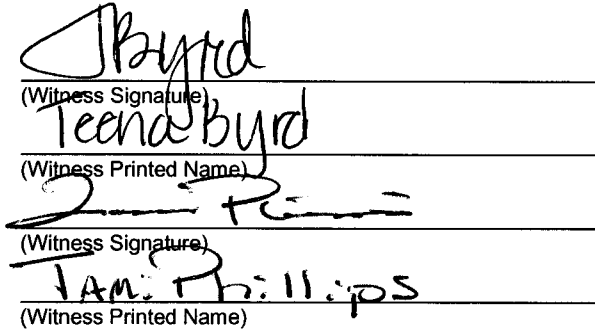 TByrd
(Witness Signature)
Teena Byrd
(Witness Printed Name)
(Witness Signature)
Tami Phillips
(Witness Printed Name)